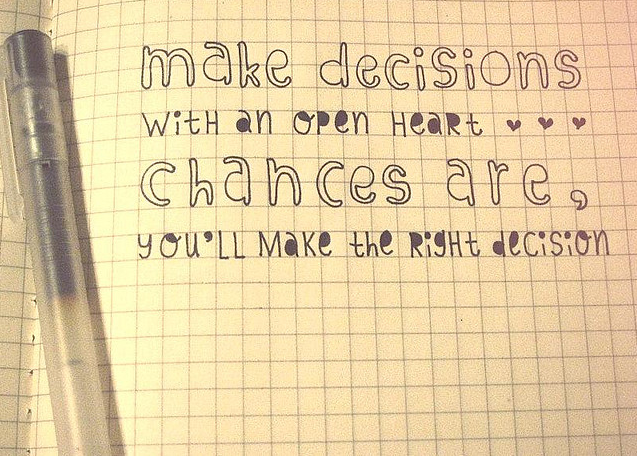 make decisions
With an open Heart ♥ ♥ ♥
chances are,
you'll Make the Right decision